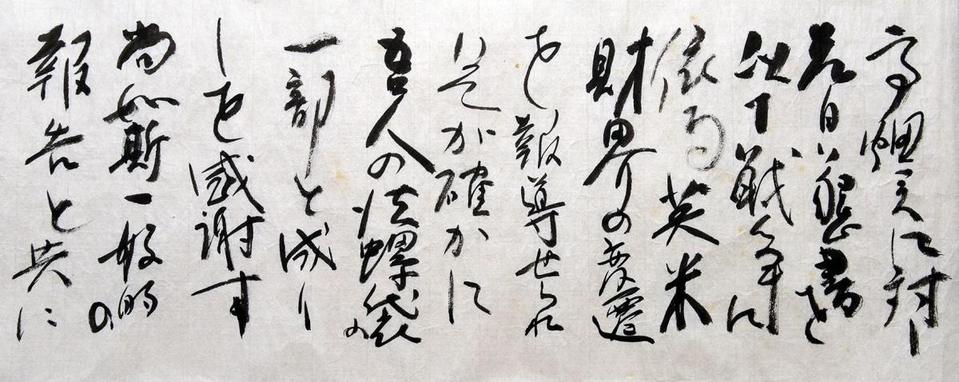 に対し
日は懇書を
戦争に
依る英米
財界の変遷
を報導せられ
是が確かに
吾人の法螺袋の
一部と成り
しを感謝す
尚如斯一般的の
報告と共に